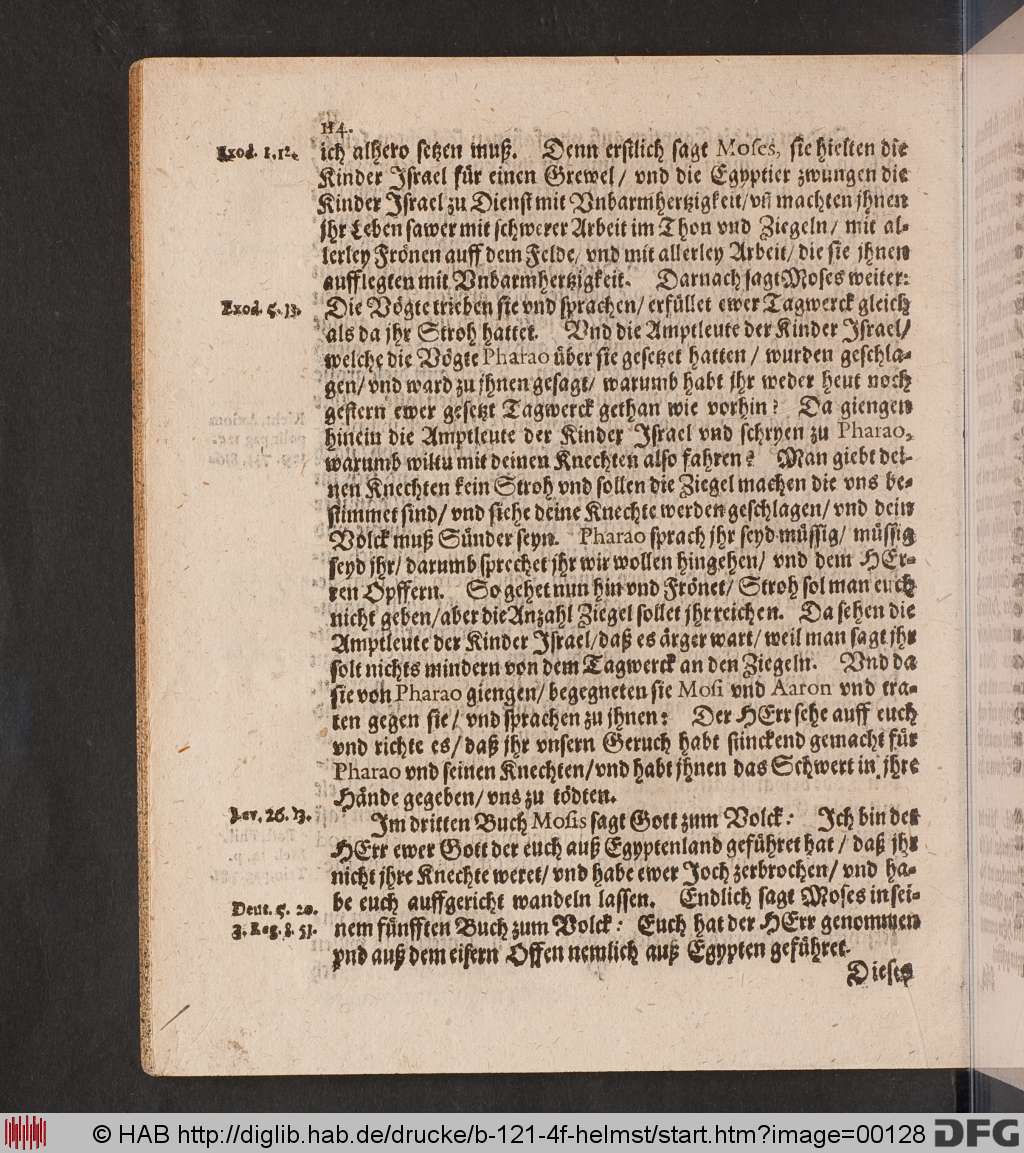 114.
Exod. 1. 12.
ich alhero setzen muß. Denn erstlich sagt Moses, sie hielten die
Kinder Israel für einen Grewel/ vnd die Egyptier zwungen die
Kinder Israel zu Dienst mit Vnbarmhertzigkeit/ vñ machten jhnen
jhr Leben sawer mit schwerer Arbeit im Thon vnd Ziegeln/ mit al-
lerley Frönen auff dem Felde/ vnd mit allerley Arbeit/ die sie jhnen
aufflegten mit Vnbarmhertzigkeit. Darnach sagt Moses weiter:
Exod. 5. 13.
Die Vögte trieben sie vnd sprachen/ erfüllet ewer Tagwerck gleich
als da jhr Stroh hattet. Vnd die Amptleute der Kinder Israel/
welche die Vögte Pharao über sie gesetzet hatten/ wurden geschla-
gen/ vnd ward zu jhnen gesagt/ warumb habt jhr weder heut noch
gestern ewer gesetzt Tagwerck gethan wie vorhin? Da giengen
hinein die Amptleute der Kinder Israel vnd schryen zu Pharao,
warumb wiltu mit deinen Knechten also fahren? Man giebt dei-
nen Knechten kein Stroh vnd sollen die Ziegel machen die vns be-
stimmet sind/ vnd siehe deine Knechte werden geschlagen/ vnd dein
Volck muß Sünder seyn. Pharao sprach jhr seyd müssig/ müssig
seyd jhr/ darumb sprechet jhr wir wollen hingehen/ vnd dem HEr-
ren Opffern. So gehet nun hin vnd Frönet/ Stroh sol man euch
nicht geben/ aber die Anzahl Ziegel sollet jhr reichen. Da sehen die
Amptleute der Kinder Israel/ daß es ärger wart/ weil man sagt jhr
solt nichts mindern von dem Tagwerck an den Ziegeln. Vnd da
sie von Pharao giengen/ begegneten sie Mosi vnd Aaron vnd tra-
ten gegen sie/ vnd sprachen zu jhnen: Der HErr sehe auff euch
vnd richte es/ daß jhr vnsern Geruch habt stinckend gemacht für
Pharao vnd seinen Knechten/ vnd habt jhnen das Schwert in jhre
Hände gegeben/ vns zu tödten.
Lev. 26. 13.
Im dritten Buch Mosis sagt Gott zum Volck: Ich bin der
HErr ewer Gott der euch auß Egyptenland geführet hat/ daß jhr
nicht jhre Knechte weret/ vnd habe ewer Joch zerbrochen/ vnd ha-
be euch auffgericht wandeln lassen. Endlich sagt Moses in sei-
Deut. 5. 20.
nem fünfften Buch zum Volck: Euch hat der HErr genommen
3. Reg. 8. 51.
vnd auß dem eisern Offen nemlich auß Egypten geführet.
Dieses
© HAB http://diglib.hab.de/drucke/b-121-4f-helmst/start.htm?image=00128
DFG